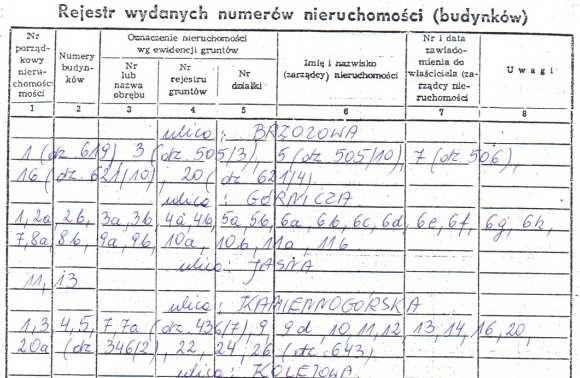 Rejestr wydanych numerów nieruchomości (budynków)
Nr porządkowy nieruchomości
Numery budynków
Oznaczenie nieruchomości wg ewidencji gruntów
Nr lub nazwa obrębu
Nr rejestru gruntów
Nr działki
Imię i nazwisko (zarządcy) nieruchomości
Nr i data zawiadomienia do właściciela (zarządcy nieruchomości
Uwagi
1 2 3 4 5 6 7 8
ulica: BRZOZOWA
1 (dz. 619) 3 (dz. 505/3), 5 (dz. 505/10), 7 (dz. 506),
16 (dz. 621/10), 20 (dz. 621/4)
ulica: GÓRNICZA
1, 2a, 2b, 3a, 3b, 4a, 4b, 5a, 5b, 6a, 6b, 6c, 6d, 6e, 6f, 6g, 6h,
7, 8a, 8b, 9a, 9b, 10a, 10b, 11a, 11b
ulica: JASNA
11, 13
ulica: KAMIENNOGÓRSKA
1, 3, 4, 5, 7, 7a (dz. 436/7), 9, 9d, 10, 11, 12, 13, 14, 16, 20,
20a (dz 346/2), 22, 24, 26 (dz. 643)
ulica: KOLEJOWA